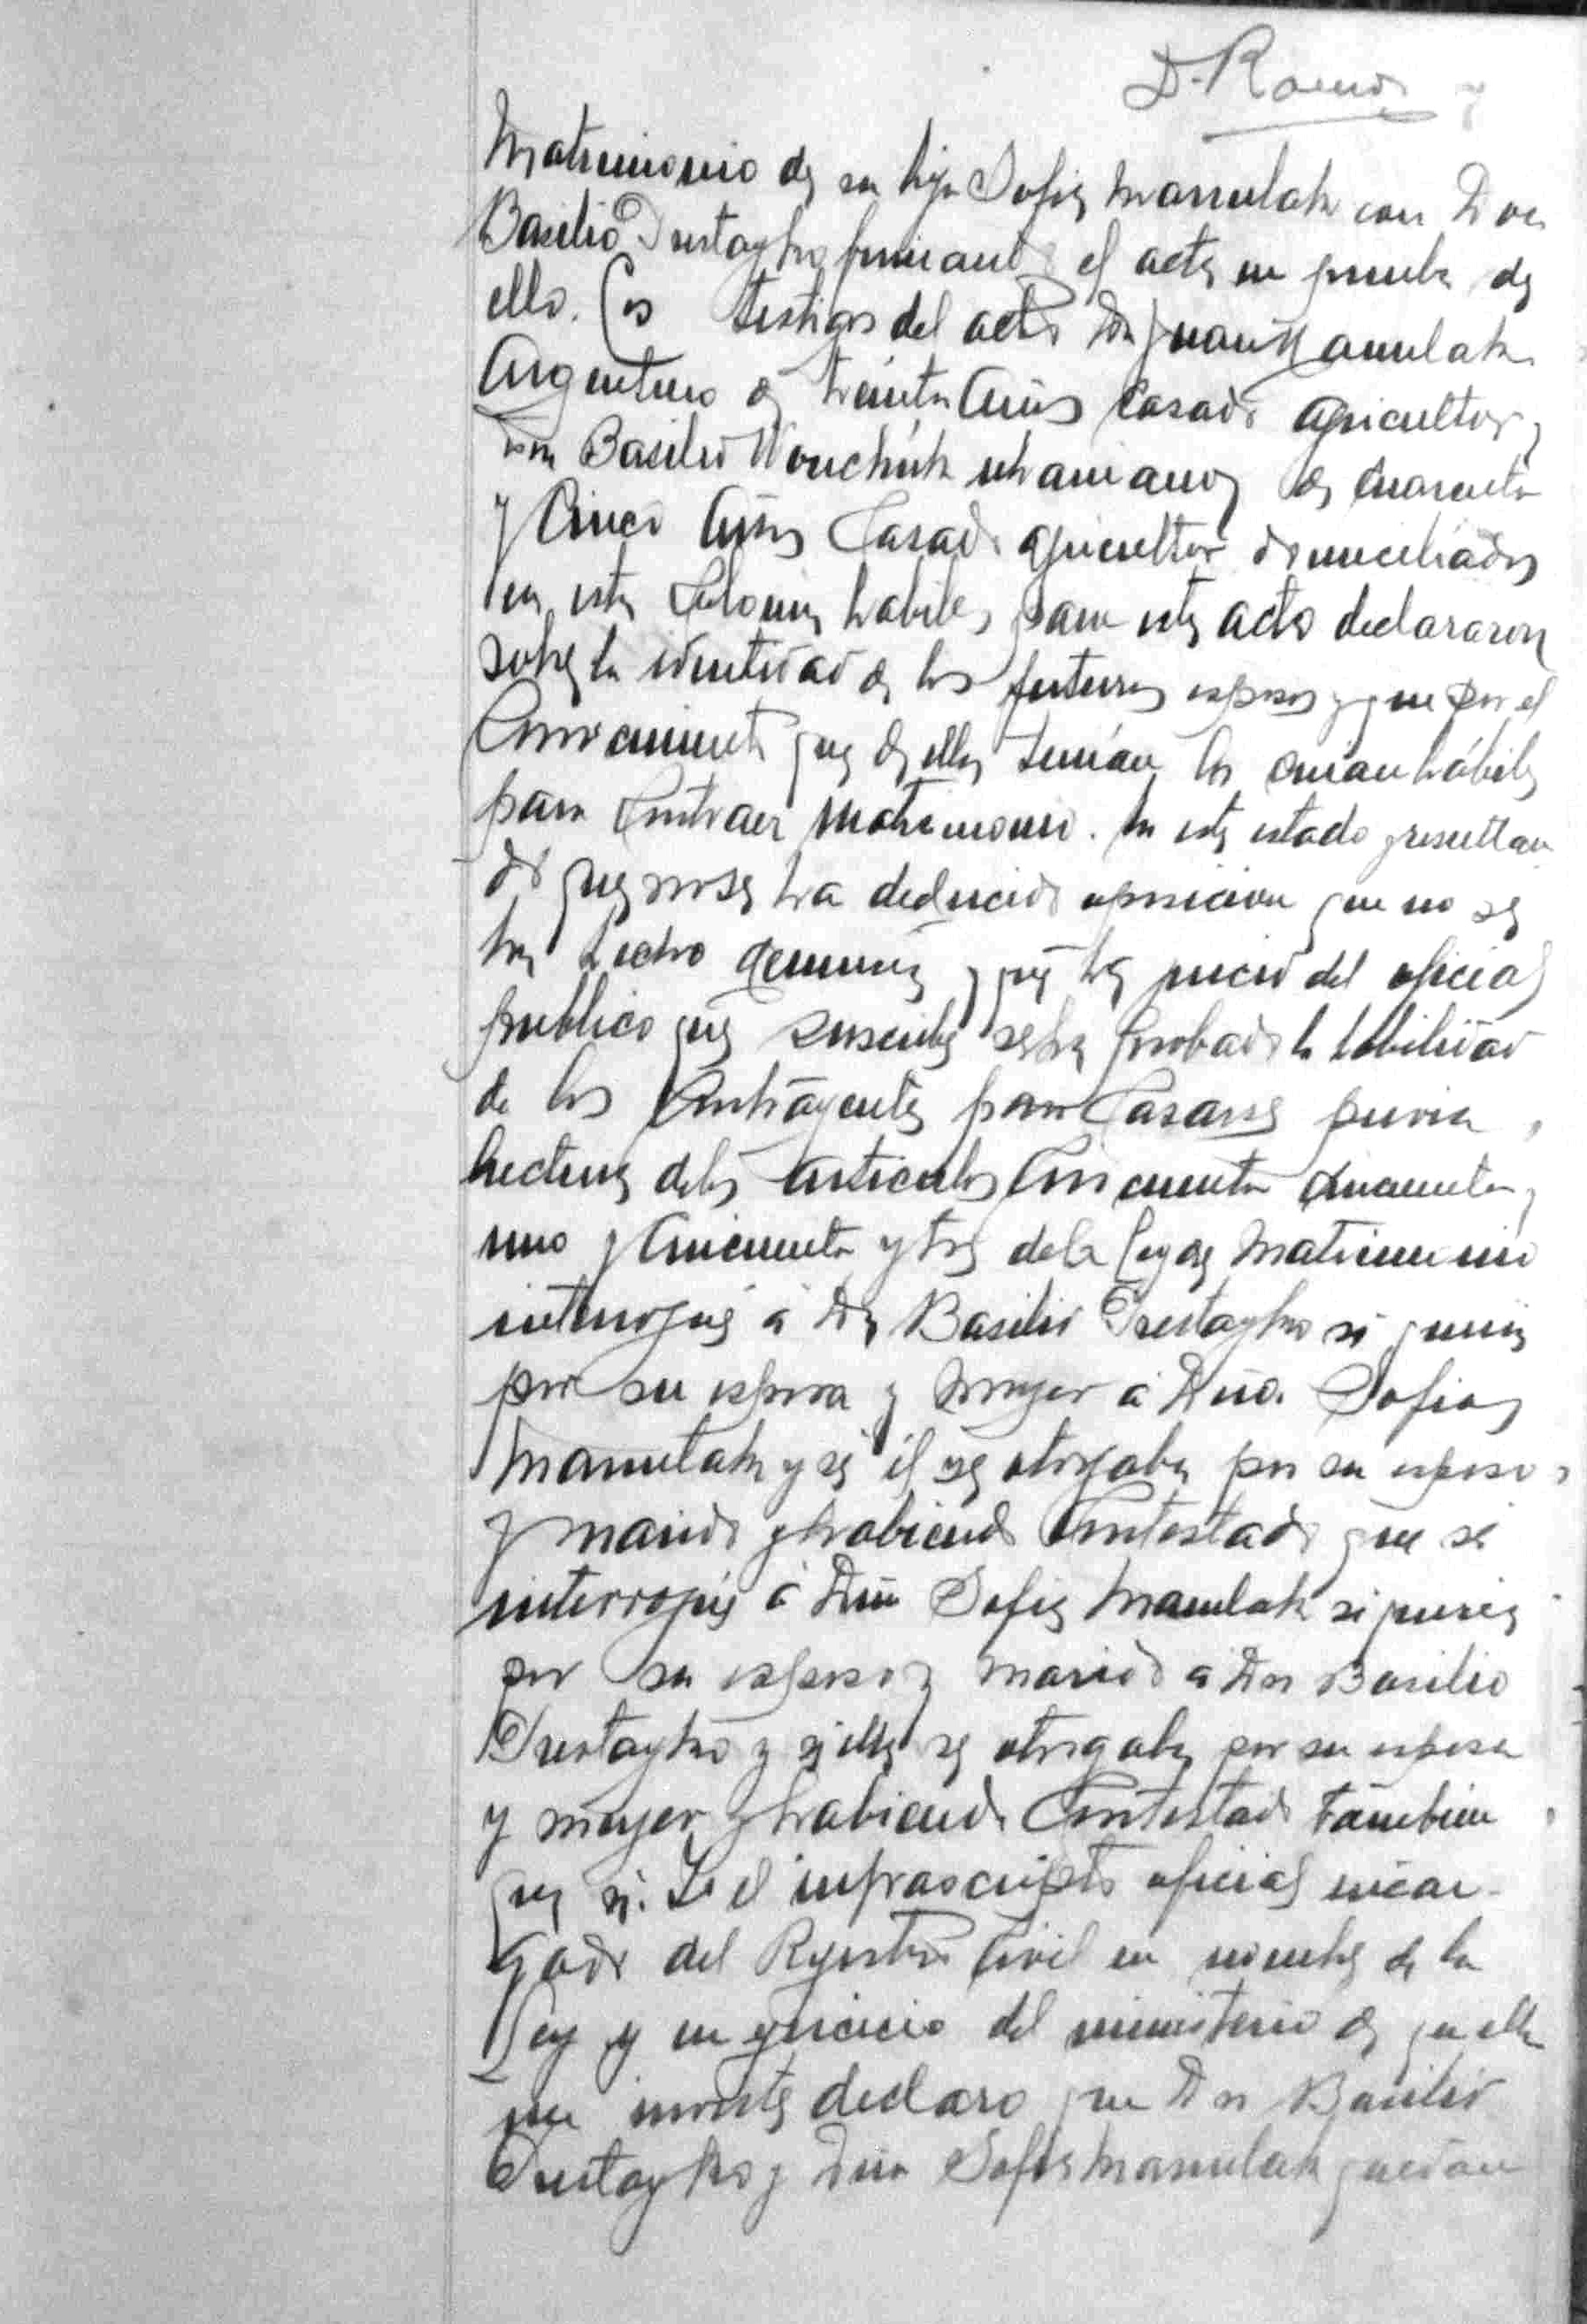 Matrimonio de su hija Sofia Manulak con Don
Basilio firmando el acta en prueba de
ello. Los testigos del acto Don Juan Manulak
Argentino de treinta años casado agricultor y
don Basilio ukraniano de cuarenta
y cinco años casado agricultor domiciliados
en esta Colonia habiles para este acto declararon
sobre la identidad de los futuros esposos y que por el
conocimiento que de ellos tenian los creian hábiles
para contraer matrimonio. En este estado y resultan
do que no se ha deducido oposicion que no se
ha hecho denuncia y que a juicio del oficial
publico que suscribe se ha probado la habilidad
de los contrayentes para casarse previa
lectura de los articulos cincuenta cincuenta y
uno y cincuenta y tres de la Ley de Matrimonio
interrogué á Don Basilio si queria
por su esposa y mujer á Dña. Sofia
Manulak y si él se otorgaba por su esposo
y marido y habiendo contestado que si
interrogué á Dña Sofia Manulak si queria
por su esposo y marido a Don Basilio
y si ella se otorgaba por su esposa
y mujer y habiendo contestado tambien
que si. Yo el infrascripto oficial encar-
gado del Registro Civil en nombre de la
Ley y en ejercicio del ministerio de que ella
me inviste declaro que Don Basilio
y Dña Sofia Manulak quedan